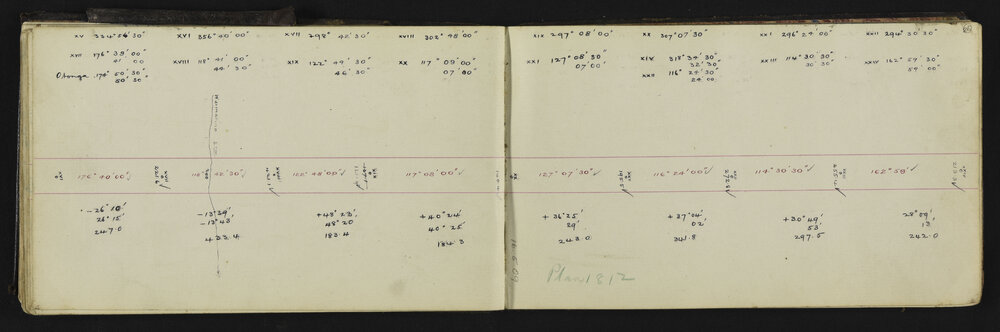 XV 334° 54' 30"
XVII 176° 39' 00"
41 00
Otonga 174° 50' 30"
50' 30"
XVI 356° 40' 00"
XVIII 118° 41' 00
44' 30"
XVII 298° 42' 30"
XIX 122° 49' 30"
46 30"
XVIII 302° 48' 00"
XX 117° 09' 00"
07' 00"
XIX 297° 08' 00"
XXI 127° 08' 30
07' 00"
XX 307° 07' 30"
XIX 318° 34' 30"
32' 30"
XXII 116° 24' 30"
24' 00
XXI 296° 24' 00"
XXIII 114° 30' 30"
30' 30"
XXII 294° 30' 30"
XXIV 162° 57' 30"
59' 00"
176° 40' 00"
118° 42' 30"
122° 48' 00"
117° 08' 00"
127° 07' 30"
116° 24' 00"
114° 30' 30"
162° 58'
-26° 10'
26° 15'
247.0
-13° 39'
-13° 43'
433.4
+48° 23'
48° 20
183.4
+40° 24'
40° 25'
184.3
+36° 25'
29'
243.0
+37° 04'
02'
341.8
+30° 49'
53'
297.5
28° 09'
13
242.0
Plan 1812